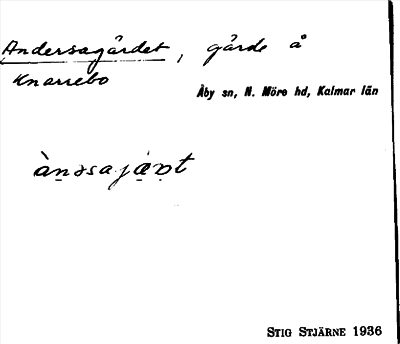 Andersagärdet, gärde å
Knarrebo
Åby sn, N. Möre hd, Kalmar län
STIG STJÄRNE 1936